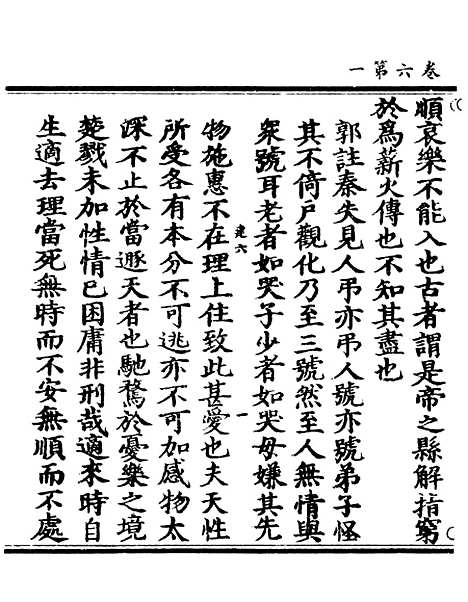 卷六第一
順哀樂不能入也古者謂是帝之縣解指窮
於為薪火傳也不知其盡也
郭註秦失見人弔亦弔人號亦號弟子怪
其不倚戶觀化乃至三號然至人無情與
衆號耳老者如哭子少者如哭母嫌其先
建六 一
物施惠不在理上住致此甚愛也夫天性
所受各有本分不可逃亦不可加感物太
深不止於當遯天者也馳騖於憂樂之境
楚戮未加性情已困庸非刑哉適來時自
生適去理當死無時而不安無順而不處